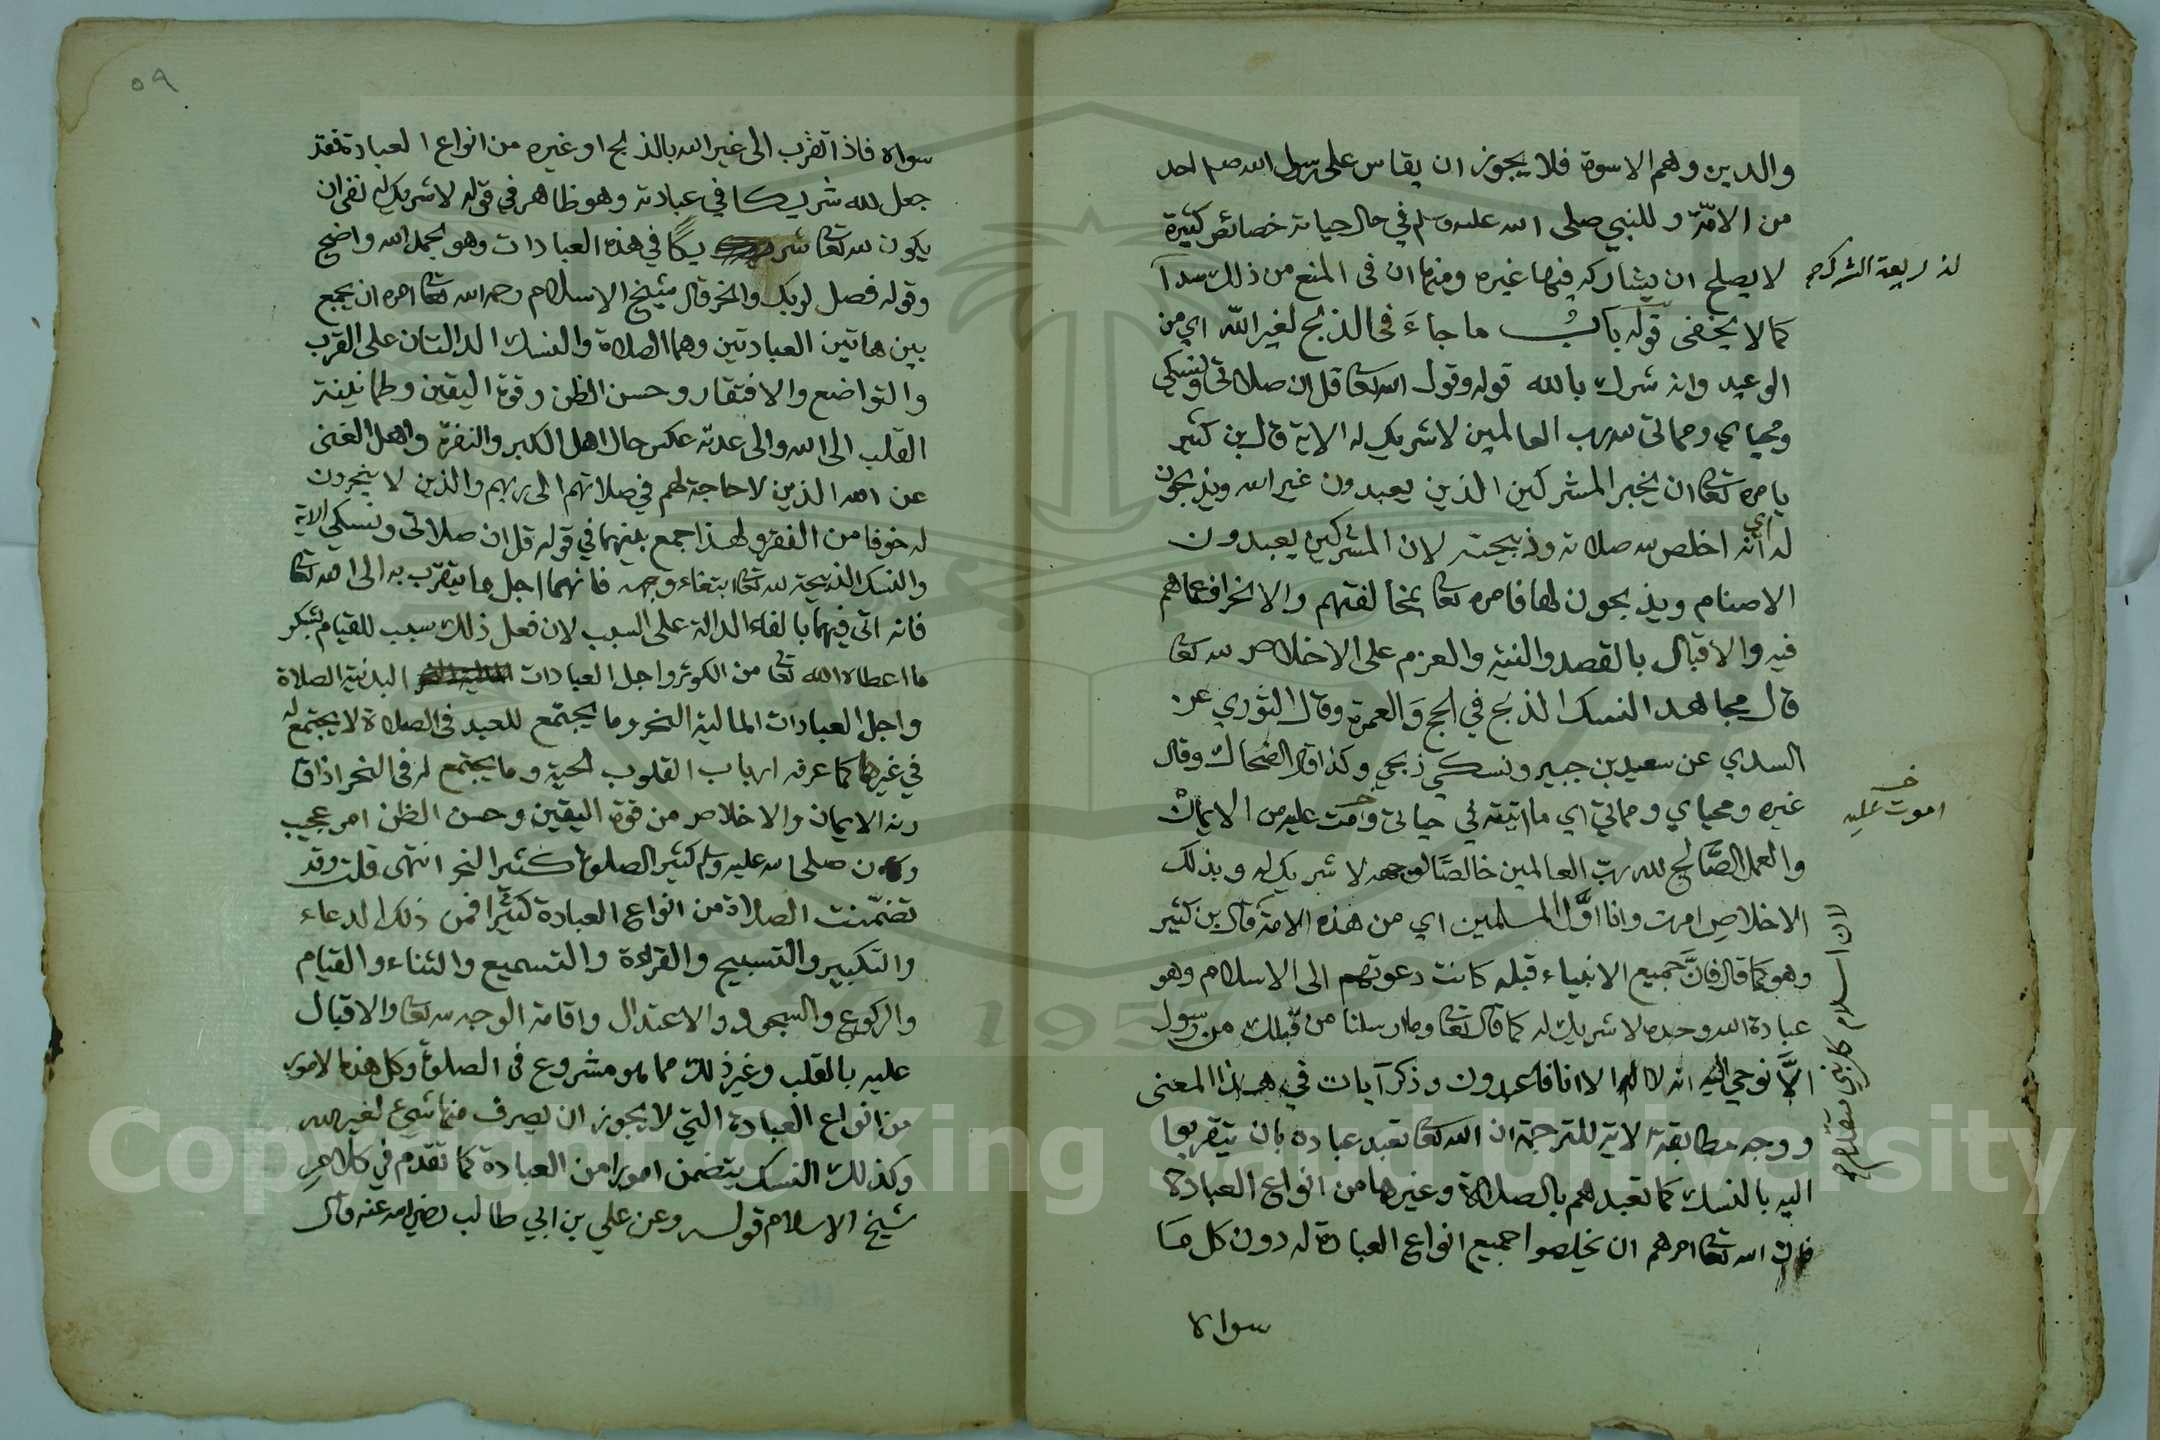 والدين وهم الاسوة فلا يجوز ان يقاس على رسول الله صلم احد
من الامّة و للنبي صلى الله عليه وسلم في حال حياته خصائص كثيرة
لا يصلح ان يشاركه فيها غيره ومنها ان في المنع من ذلك سدا
لذريعة الشرك صح
كما لا يخفى قوله باب ما جاءَ في الذبح لغير الله اي من
الوعيد وانه شرك بالله قوله وقول الله تعا قل ان صلاتي ونسكي
ومحياي ومماتي لله رب العالمين لا شريك له الاية قال بن كثير
يامره تعا ان يخبر المشركين الذين يعبدون غير الله ويذبحون
له اي انه اخلص لله صلاته وذبيحته لان المشركين يعبدون
الاصنام ويذبحون لها فامره تعا بمخالفتهم والانحراف عماهم
فيه والاقبال بالقصد والنية والعزم على الاخلاص لله تعا
قال مجاهد النسك الذبح في الحج وَالعمرة وقال الثوري عن
السدي عن سعيد بن جبير ونسكي ذبحي وكذا قال الضحاك وقال
غيره ومحياي ومماتي اي ما اتيته في حياتي وامت عليه من الايمان
خ اموت عليه
والعمل الصَّالح لله ربّ العالمين خالصًا لوجهه لا شريك له وبذلك
الاخلاص امرت وانا اوَّل المسلمين اي من هذه الامة قال بن كثير
لان اسلام كل نبي متقدم
وهو كما قال فانَّ جميع الانبياء قبله كانت دعوتهم الى الاسلام وهو
عبادة الله وحده لا شريك له كما قال تعا وما ارسلنا من قبلك من رسول
الاَّ نوحي اليه انه لا اله الا انا فاعبدون وذكر آيات في هذا المعنى
ووجه مطابقة الاية للترجمة ان الله تعا تعبد عباده بان يتقربوا
اليه بالنسك كما تعبدهم بالصلاة وغيرها من انواع العبادة
فان الله تعا امرهم ان يخلصوا جميع انواع العبادة له دون كل ما
سواه
٥٩
سواه فاذا تقرب الى غير الله بالذبح او غيره من انواع العبادة فقد
جعل لله شريكا في عبادته وهو ظاهر في قوله لا شريك له نفى ان
يكون لله تعا شريكًا في هذه العبادات وهو بحمد الله واضح
وقوله فصل لربك وانحر قال شيخ الاسلام رحمه الله تعا امره ان يجمع
بين هاتين العبادتين وهما الصلاة والنسك الدالتان على القرب
والتواضع والافتقار وحسن الظن وقوة اليقين وطمانينة
القلب الى الله والى عدته عكس حال اهل الكبر والنفرة واهل الغنى
عن الله الذين لا حاجة لهم في صلاتهم الى ربهم والذين لا ينحرون
له خوفا من الفقر ولهذا جمع بينهما في قوله قل ان صلاتي ونسكي الاية
والنسك الذبيحة لله تعا ابتغاء وجهه فانهما اجل ما يتقرّب به الى الله تعا
فانه اتى فيهما بالفاء الدالة على السبب لان فعل ذلك سبب للقيام بشكر
ما اعطاه الله تعا من الكوثر واجل العبادات البدنية الصلاة
واجل العبادات المالية النحر وما يجتمع للعبد في الصلاة لا يجتمع له
في غيرها كما عرفه ارباب القلوب الحية وما يجتمع له في النحر اذا قا
رنه الايمان والاخلاص من قوة اليقين وحسن الظن امر عجيب
وكان صلى الله عليه وسلم كثير الصلوة كثير النحر انتهى قلت وقد
تضمّنت الصلاة من انواع العبادة كثيرًا فمن ذلك الدعاء
والتكبير والتسبيح والقراءة والتسميع والثناء والقيام
والركوع والسجود والاعتدال واقامة الوجه لله تعا والاقبال
عليه بالقلب وغير ذلك مما هو مشروع في الصلوة وكل هذه الامور
من انواع العبادة التي لا يجوز ان يصرف منها شيء لغير الله
وكذلك النسك يتضمن امورا من العبادة كما تقدّم في كلام
شيخ الاسلام قوله وعن علي بن ابي طالب رضي الله عنه قال
Copyright © King Saud University
1957